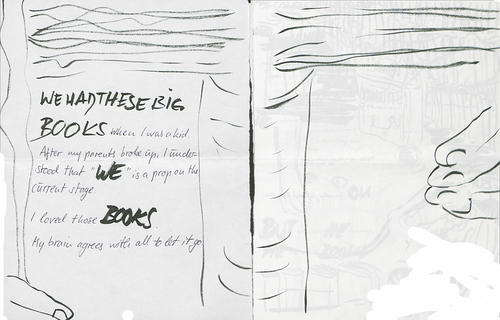 WE HAD THESE BIG
BOOKS when I was a kid.
After my parents broke up, I under-
stood that "WE" is a prop on the
current stage.
I loved those BOOKS.
My brain agrees with all to let it go.